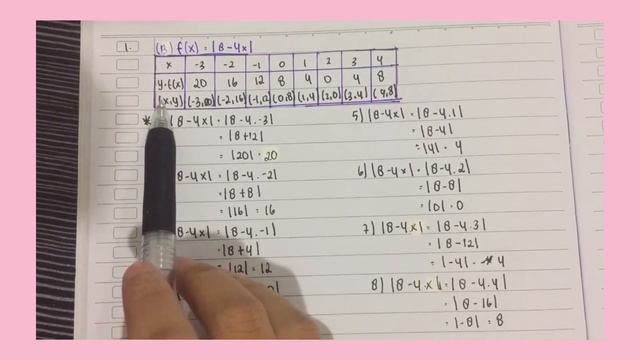 1. (B) f(x) = |8-4x|
x -3 -2 -1 0 1 2 3 4
y=f(x) 20 16 12 8 4 0 4 8
(x,y) (-3,20) (-2,16) (-1,12) (0,8) (1,4) (2,0) (3,4) (4,8)
* |8-4x| = |8-4.-3|
= |8+12|
= |20| = 20
8-4x| = |8-4.-2|
= |8+8|
= |16| = 16
8-4x| = |8-4.-1|
= |8+4|
= |12| = 12
5) |8-4x| = |8-4.1|
= |8-4|
= |4| = 4
6) |8-4x| = |8-4.2|
= |8-8|
= |0| = 0
7) |8-4x| = |8-4.3|
= |8-12|
= |-4| = 4
8) |8-4x| = |8-4.4|
= |8-16|
= |-8| = 8